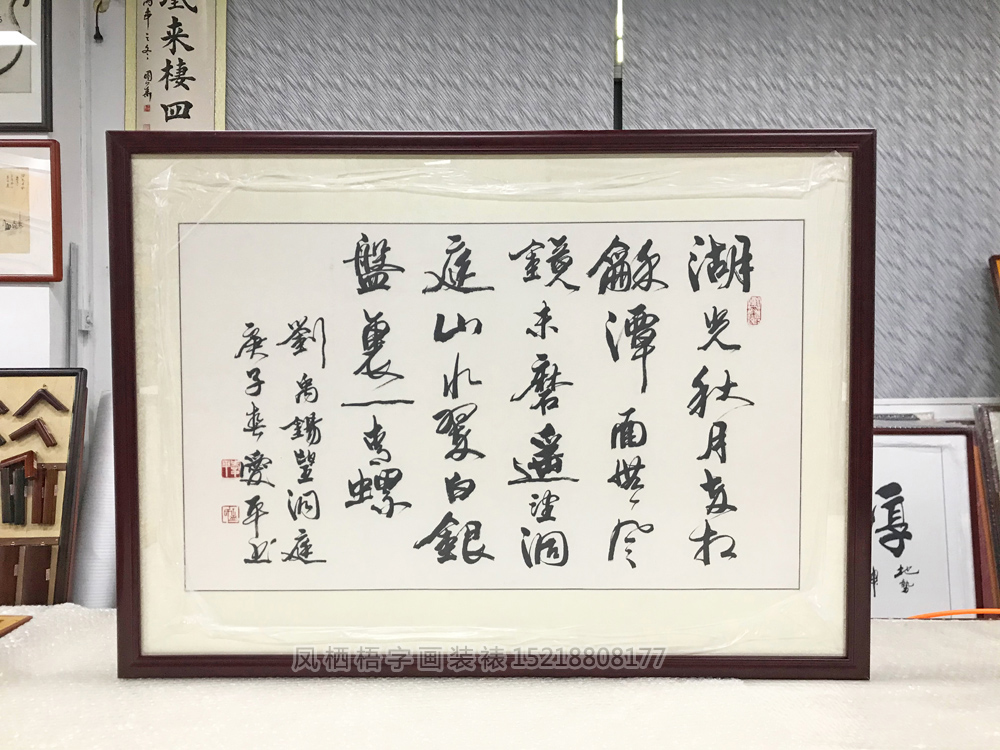 凰来棲四
湖光秋月两相
龢潭面無風
鏡未磨遥望洞
庭山水翠白銀
盤裏一青螺
劉禹錫望洞庭
庚子春愛平书
地勢
凤栖梧字画装裱15218808177